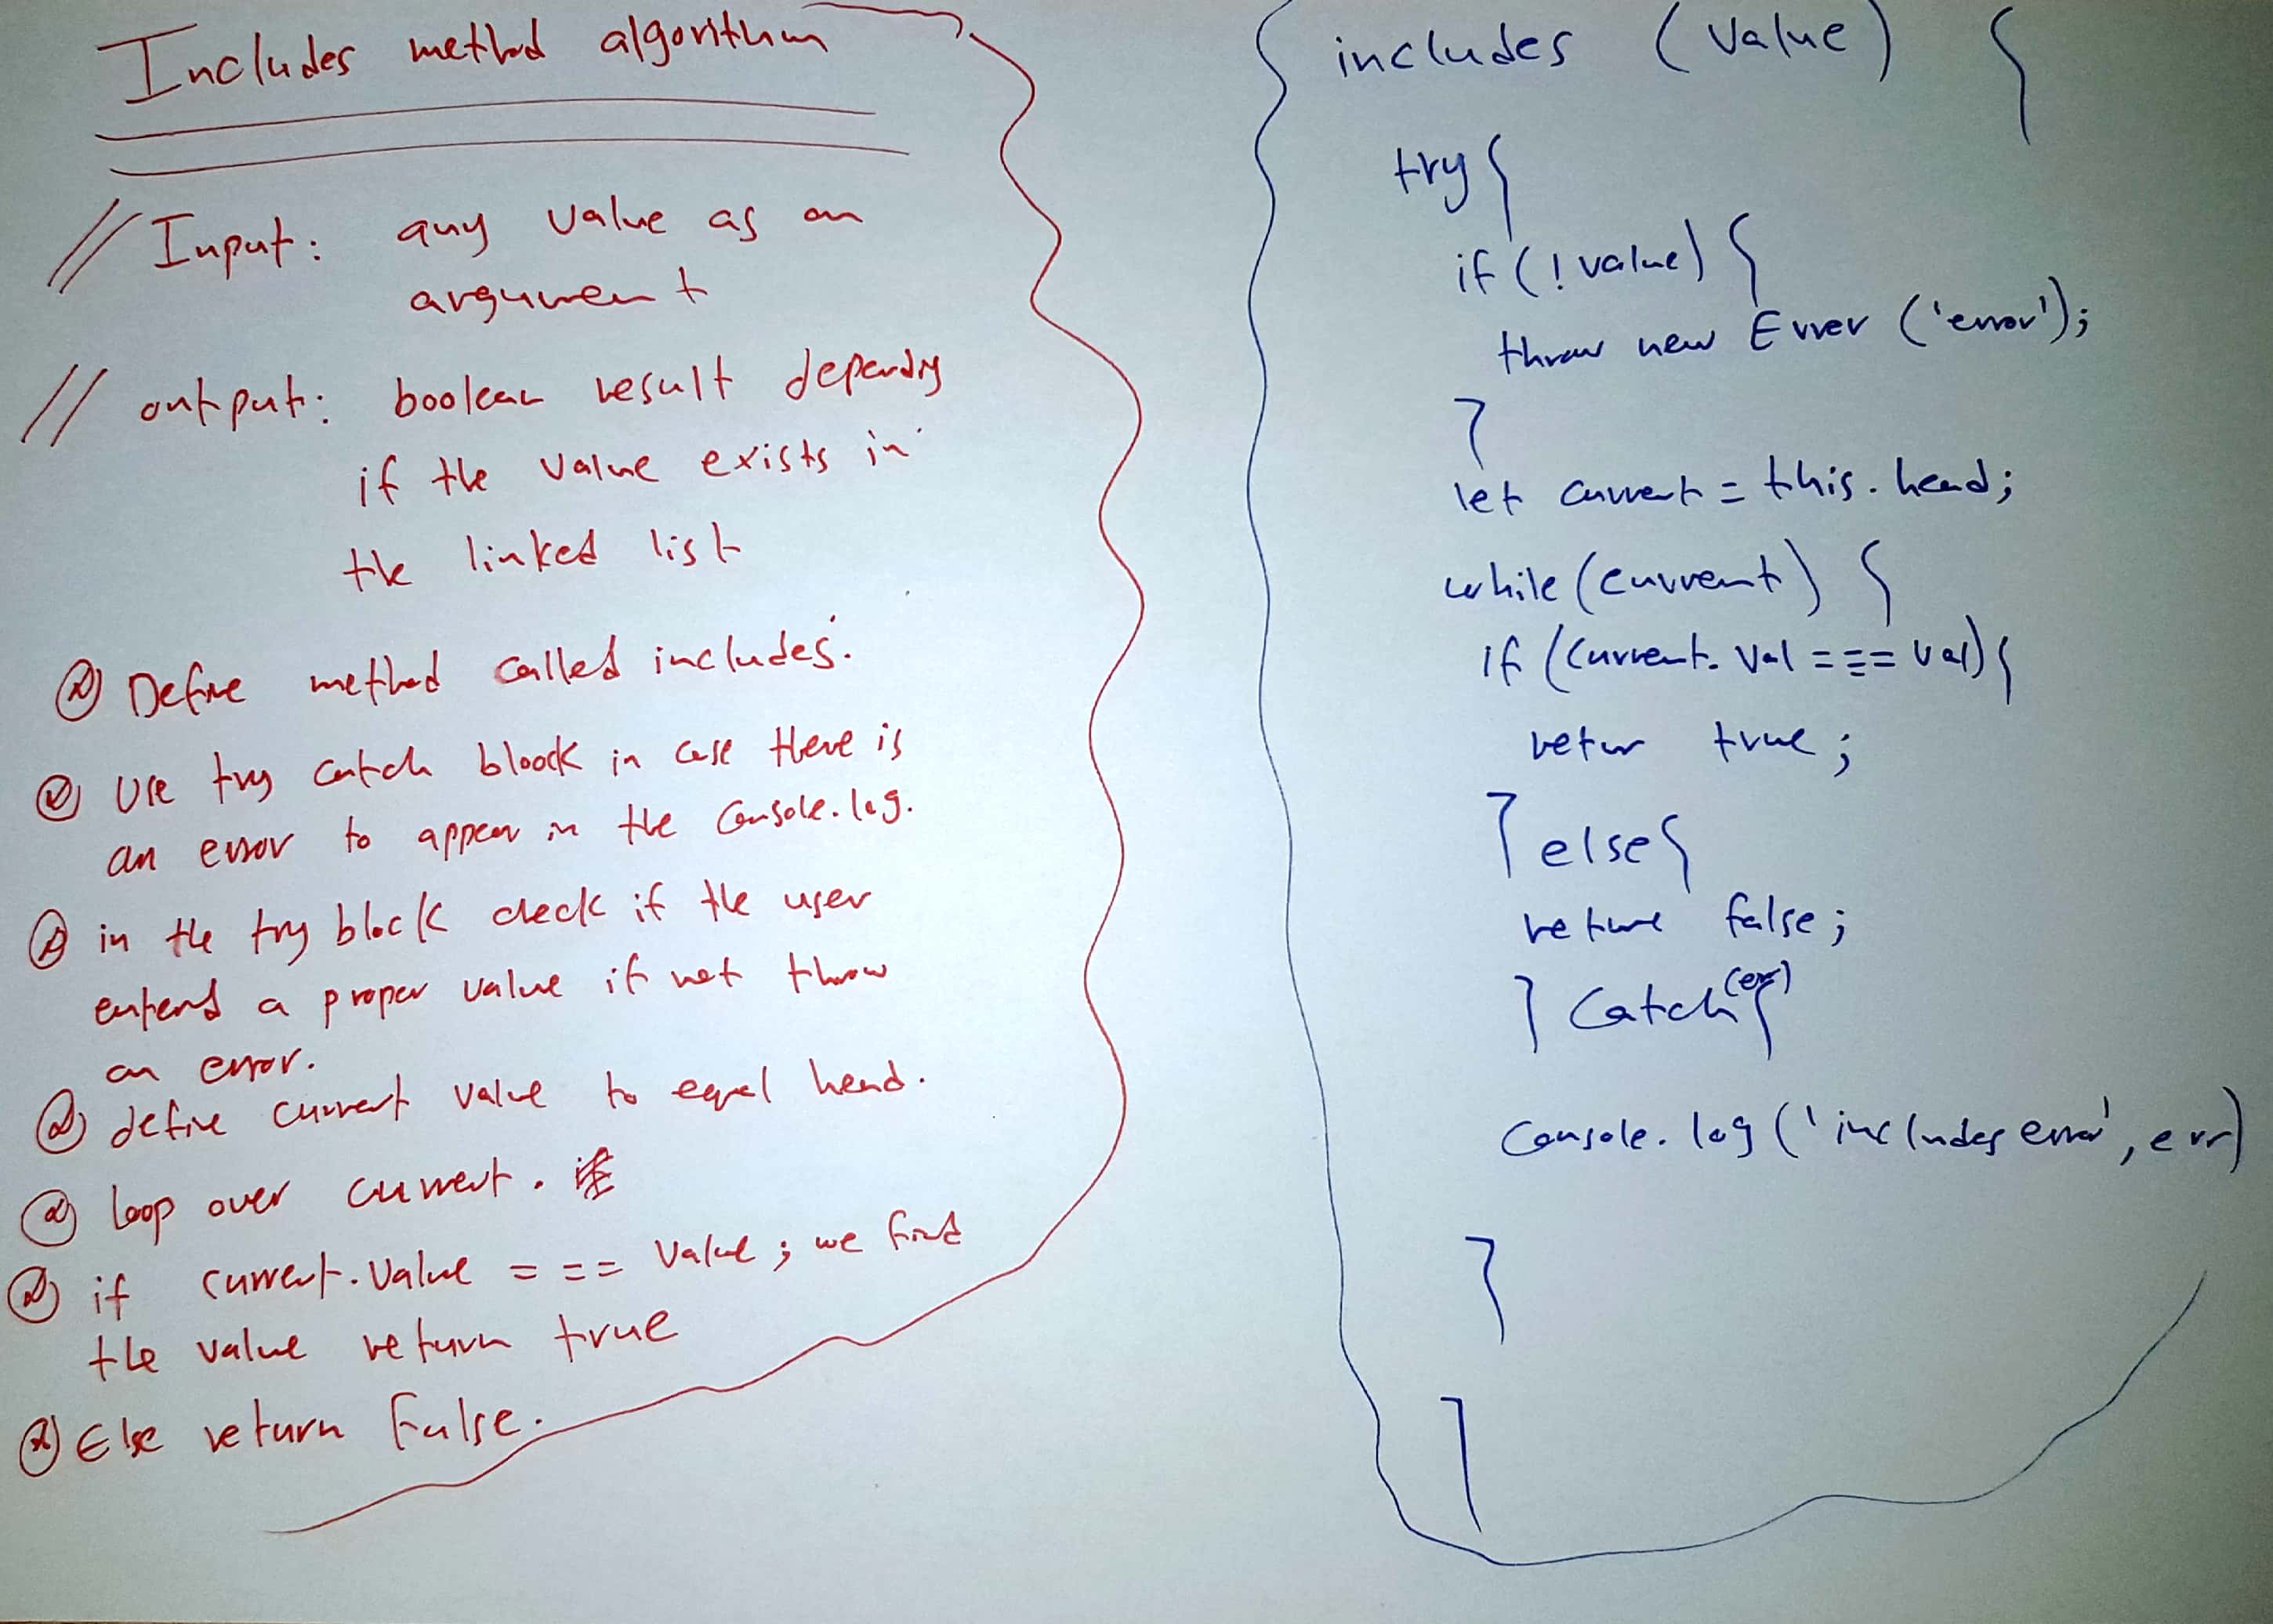 Includes method algorithm
// Input: any value as an
argument
// output: boolean result depending
if the value exists in
the linked list
Define method called includes.
Use try catch bloock in case there is
an error to appear in the Console.log.
in the try block check if the user
enterd a proper value if not throw
an error.
define current value to equal head.
loop over current.
if current.value === value; we find
the value return true
Else return False.
includes (value) {
try {
if (! value) {
throw new Error ('error');
}
let current = this.head;
while (current) {
if (current.val === val) {
retur true;
} else {
return false;
} Catch (err) {
Console.log ('includes error', err)
}
}